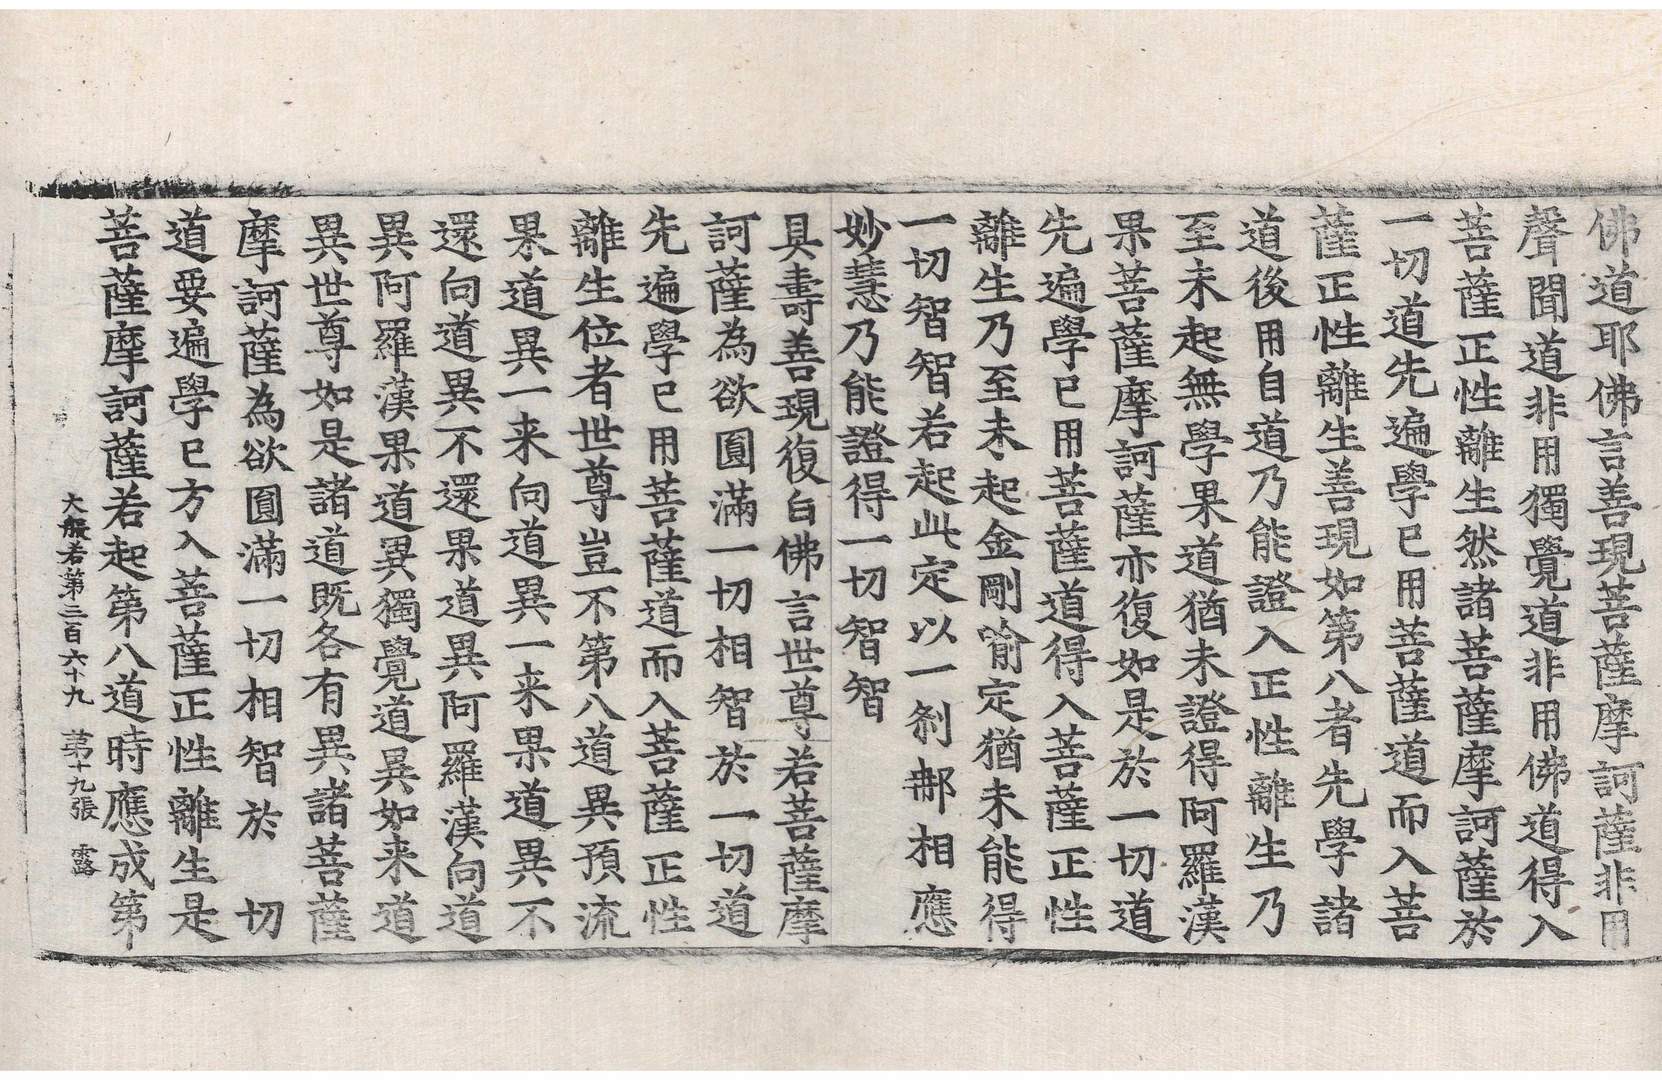 佛道耶佛言善現菩薩摩訶薩非用
聲聞道非用獨覺道非用佛道得入
菩薩正性離生然諸菩薩摩訶薩於
一切道先遍學已用菩薩道而入菩
薩正性離生善現如第八者先學諸
道後用自道乃能證入正性離生乃
至未起無學果道猶未證得阿羅漢
果菩薩摩訶薩亦復如是於一切道
先遍學已用菩薩道得入菩薩正性
離生乃至未起金剛喻定猶未能得
一切智智若起此定以一刹那相應
妙慧乃能證得一切智智
具壽善現復白佛言世尊若菩薩摩
訶薩為欲圓滿一切相智於一切道
先遍學已用菩薩道而入菩薩正性
離生位者世尊豈不第八道異預流
果道異一来向道異一来果道異不
還向道異不還果道異阿羅漢向道
異阿羅漢果道異獨覺道異如来道
異世尊如是諸道既各有異諸菩薩
摩訶薩為欲圓滿一切相智於 切
道要遍學已方入菩薩正性離生是
菩薩摩訶薩若起第八道時應成第
大般若第三百六十九 第十九張 露